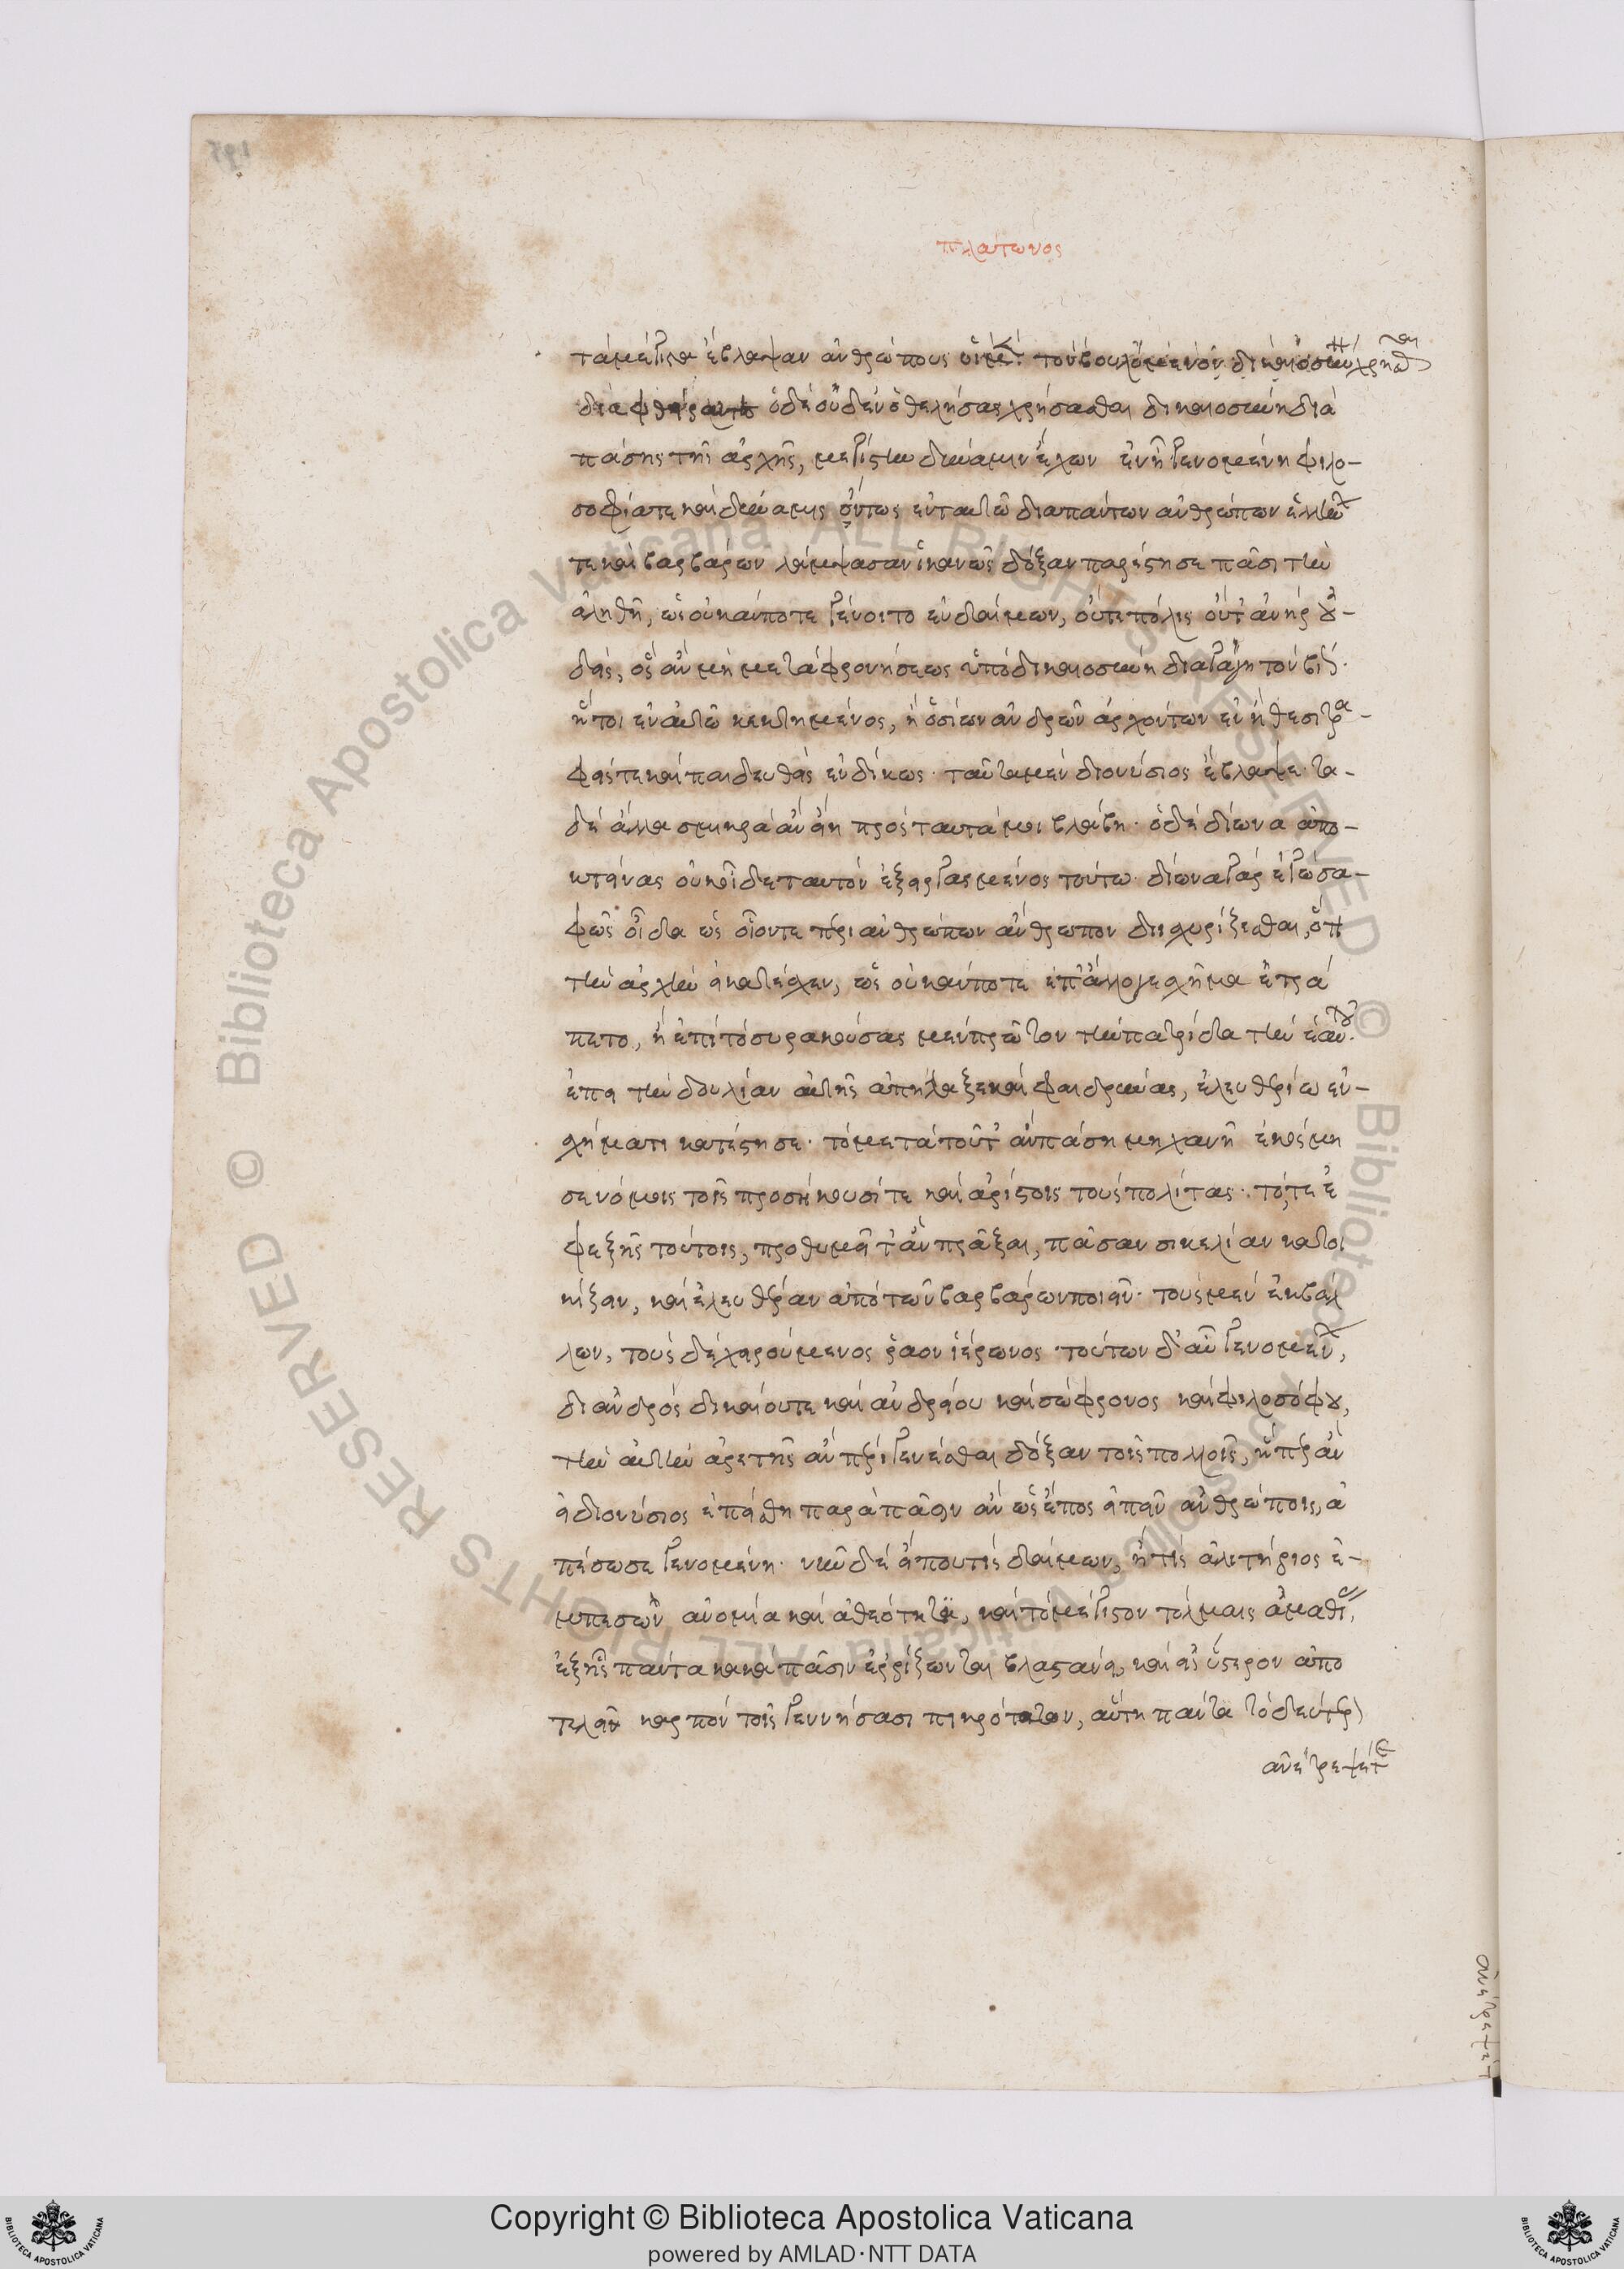 πλάτωνος
τὰ μέγιστα ἔβλαψαν ἀνθρώπους οἱ μὲν τὸν βουλόμενον δικαιοσύνῃ χρῆσθαι
διαφθείραντες ὁ δὲ οὐδὲν ἐθελήσας χρήσασθαι δικαιοσύνη διὰ
πάσης τῆς ἀρχῆς, μεγίστην δύναμιν ἔχων ἐν ᾗ γενομένη φιλο-
σοφία τε καὶ δύναμις ὄντως ἐν ταυτῷ διὰ πάντων ἀνθρώπων ἑλλήνων
τε καὶ βαρβάρων λάμψασαν ἱκανῶς δόξαν παρέστησε πᾶσι τὴν
ἀληθῆ, ὡς οὐκ ἄν ποτε γένοιτο εὐδαίμων, οὔτε πόλις οὔτ' ἀνὴρ οὐ-
δείς, ὃς ἂν μὴ μετὰ φρονήσεως ὑπὸ δικαιοσύνη διαγάγη τὸν βίον.
ἤτοι ἐν αὑτῷ κεκτημένος, ἢ ὁσίων ἀνδρῶν ἀρχόντων ἐν ἤθεσι τρα-
φείς τε καὶ παιδευθεὶς ἐνδίκως· ταῦτα μὲν διονύσιος ἔβλαψε· τὰ
δὲ ἄλλα σμικρὰ ἂν εἴη πρὸς ταῦτά μοι βλάβη· ὁ δὲ δίωνα ἀπο-
κτείνας οὐκ οἶδε ταυτὸν ἐξειργασμένος τούτω· δίωνα γὰρ ἐγὼ σα-
φῶς οἶδα ὡς οἷόν τε περὶ ἀνθρώπων ἄνθρωπον διισχυρίζεσθαι, ὅτι
τὴν ἀρχὴν εἰ κατέσχεν, ὡς οὐκ ἄν ποτε ἐπ' ἄλλο γε σχῆμα ἐτρά
πετο, ἢ ἐπὶ τὸ συρακούσας μὲν πρῶτον τὴν πατρίδα τὴν ἑαυτοῦ.
ἐπεὶ τὴν δουλείαν αὐτῆς ἀπήλαξε καὶ φαιδρύνας, ἐλευθερίω ἐν
σχήματι κατέστησε· τὸ μετὰ τοῦτ' ἂν πάση μηχανῆ ἐκόσμη
σε νόμοις τοῖς προσήκουσί τε καὶ ἀρίστοις τοὺς πολίτας· τό, τε ἐ
φεξῆς τούτοις, προθυμεῖτ' ἂν πρᾶξαι, πᾶσαν σικελίαν κατοι
κίζειν, καὶ ἐλευθέραν ἀπὸ τῶν βαρβάρων ποιεῖν· τοὺς μὲν ἐκβάλ
λων, τοὺς δὲ χειρούμενος ῥᾷον ἱέρωνος· τούτων δ' αὖ γενομένων,
δι ἀνδρὸς δικαίου τε καὶ ἀνδρείου καὶ σώφρονος καὶ φιλοσόφου,
τὴν αὐτὴν ἀρετῆς ἂν πέρι γενέσθαι δόξαν τοῖς πολλοῖς, ἥπερ ἂν
εἰ διονύσιος ἐπείσθη παρὰ πᾶσιν ἂν ὡς ἔπος εἰπεῖν ἀνθρώποις, ἀ
πέσωσε γενομένη· νῦν δὲ ἤ που τις δαίμων, ἤ τις ἀλιτήριος ἐ-
μπεσὼν ἀνομία καὶ ἀθεότητι, καὶ τὸ μέγιστον τόλμαις ἀμαθίας,
ἐξ ἧς πάντα κακὰ πᾶσιν ἐρρίζωται βλαστάνει, καὶ εἰς ὕστερον ἀπο
τελεῖ καρπὸν τοῖς γεννήσασι πικρότατον, αὕτη πάντα τὸ δεύτερον
ἀνέτρεψέτε